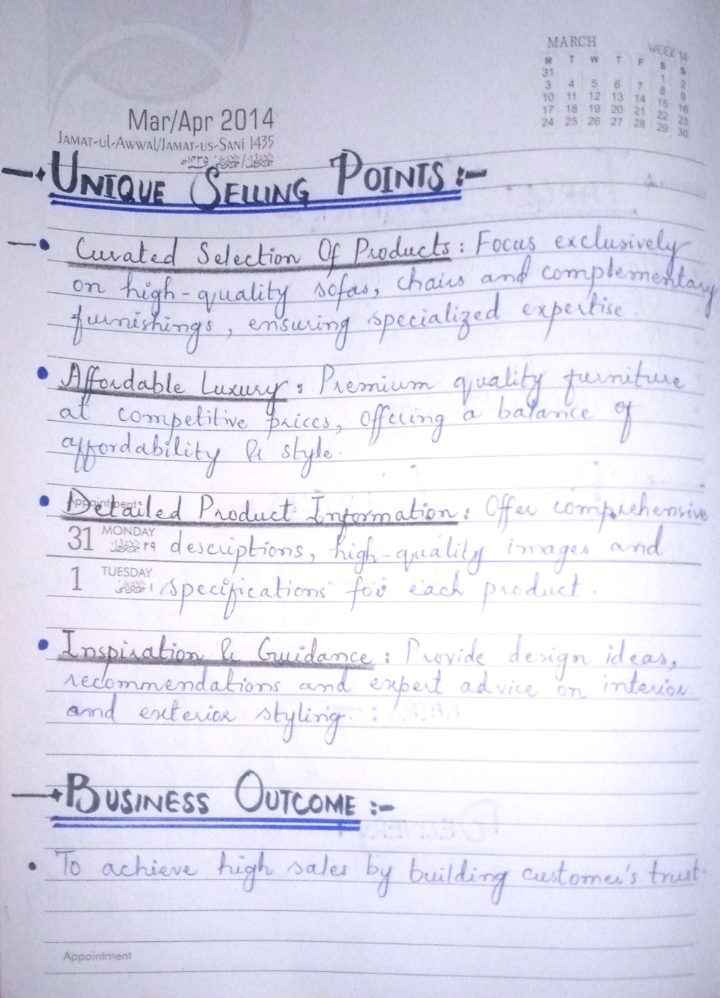 MARCH WEEK 14
M T W T F S S
31 1 2
3 4 5 6 7 8 9
10 11 12 13 14 15 16
17 18 19 20 21 22 23
24 25 26 27 28 29 30
Mar/Apr 2014
JAMAT-UL-AWWAL/JAMAT-US-SANI 1435
UNIQUE SELLING POINTS :-
• Curated Selection Of Products : Focus exclusively
on high-quality sofas, chairs and complementary
furnishings, ensuring specialized expertise.
• Affordable Luxury : Premium quality furniture
at competitive prices, offering a balance of
affordability & style.
Appointment:
• Detailed Product Information : Offer comprehensive
31 MONDAY descriptions, high-quality images and
1 TUESDAY specifications for each product.
• Inspiration & Guidance : Provide design ideas,
recommendations and expert advice on interior
and exterior styling.
BUSINESS OUTCOME :-
• To achieve high sales by building customer's trust.
Appointment